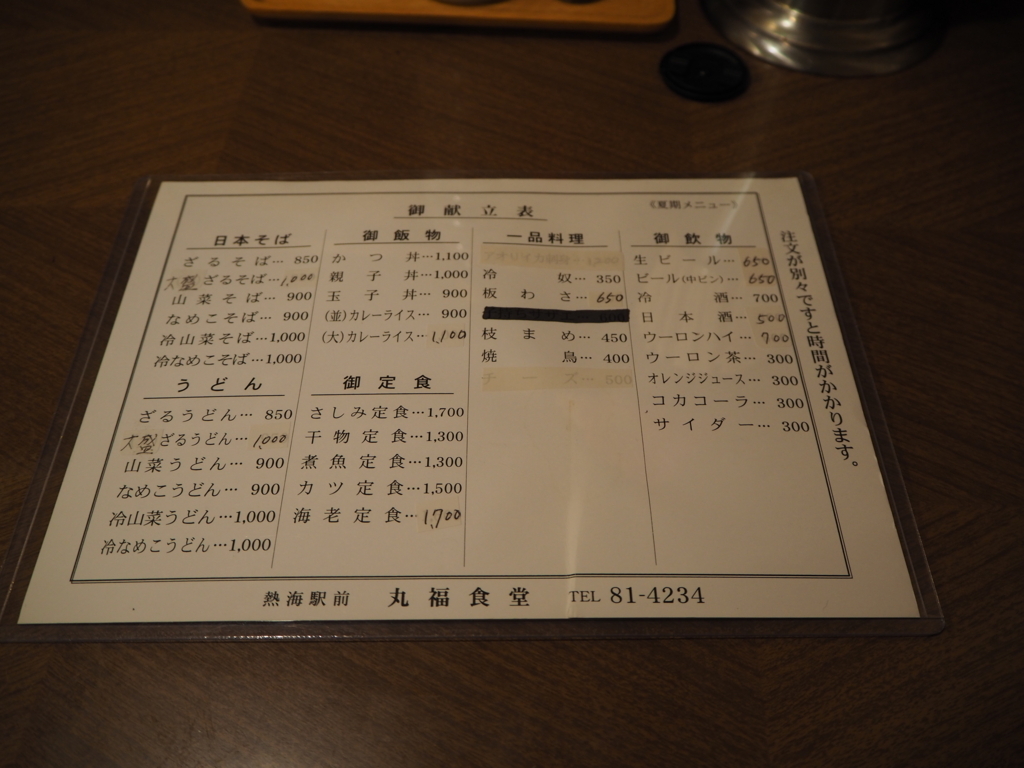 御献立表
《夏期メニュー》
日本そば
ざるそば… 850
大盛ざるそば…1,000
山菜そば… 900
なめこそば… 900
冷山菜そば…1,000
冷なめこそば…1,000
うどん
ざるうどん… 850
大盛ざるうどん…1,000
山菜うどん… 900
なめこうどん… 900
冷山菜うどん…1,000
冷なめこうどん…1,000
御飯物
かつ丼…1,100
親子丼…1,000
玉子丼… 900
(並)カレーライス… 900
(大)カレーライス…1,100
御定食
さしみ定食…1,700
干物定食…1,300
煮魚定食…1,300
カツ定食…1,500
海老定食…1,700
一品料理
冷奴… 350
板わさ… 650
枝まめ… 450
焼鳥… 400
チーズ… 500
御飲物
生ビール… 650
ビール(中ビン)… 650
冷酒… 700
日本酒… 500
ウーロンハイ… 700
ウーロン茶… 300
オレンジジュース… 300
コカコーラ… 300
サイダー… 300
注文が別々ですと時間がかかります。
熱海駅前 丸福食堂 TEL 81-4234